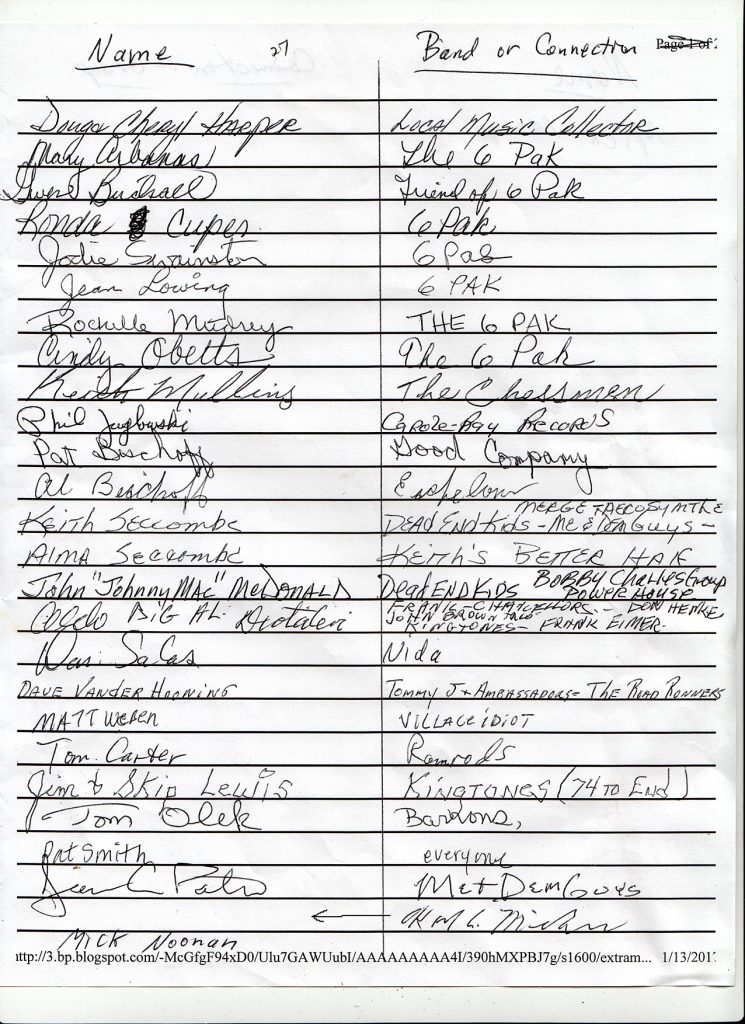 Name 27 Band or Connection Page 1 of 2
Doug & Cheryl Harper Local Music Collector
Mary The 6 Pak
Birdsall Friend of 6 Pak
Ronda Cupes 6 Pak
Jodie Swainston 6 Pak
Jean Lowing 6 PAK
Rochelle THE 6 PAK
Cindy Obetts The 6 Pak
Keith Mullins The Chessmen
Phil Caroze-Ray RECORDS
Pat Bischoff Good Company
Al Bischoff
MERGE
Keith Seccombe DEAD END Kids - ME & DEM GUYS -
Alma Seccombe KEITH'S BETTER HAF
BOBBY Charles Group
John "Johnny MAC" McDONALD Dead END KIDS POWER HOUSE
FRANK - CHANCELLORS - DON HENKE
BIG AL JOHN BROWN
KINGTONES - FRANK EIMER.
SaLas Nida
DAVE VANDER HOONING Tommy J + AMBASSADORS = THE ROAD RUNNERS
MATT WEBER VILLAGE iDiOT
Tom Carter Ramrods
Jim & Skip Lewis KINGTONES (74 TO END)
Tom Olek
Pat Smith everyone
Me + Dem Guys
←
Mick Noonan
ttp://3.bp.blogspot.com/-McGfgF94xD0/Ulu7GAWUubI/AAAAAAAAA4I/390hMXPBJ7g/s1600/extram... 1/13/201